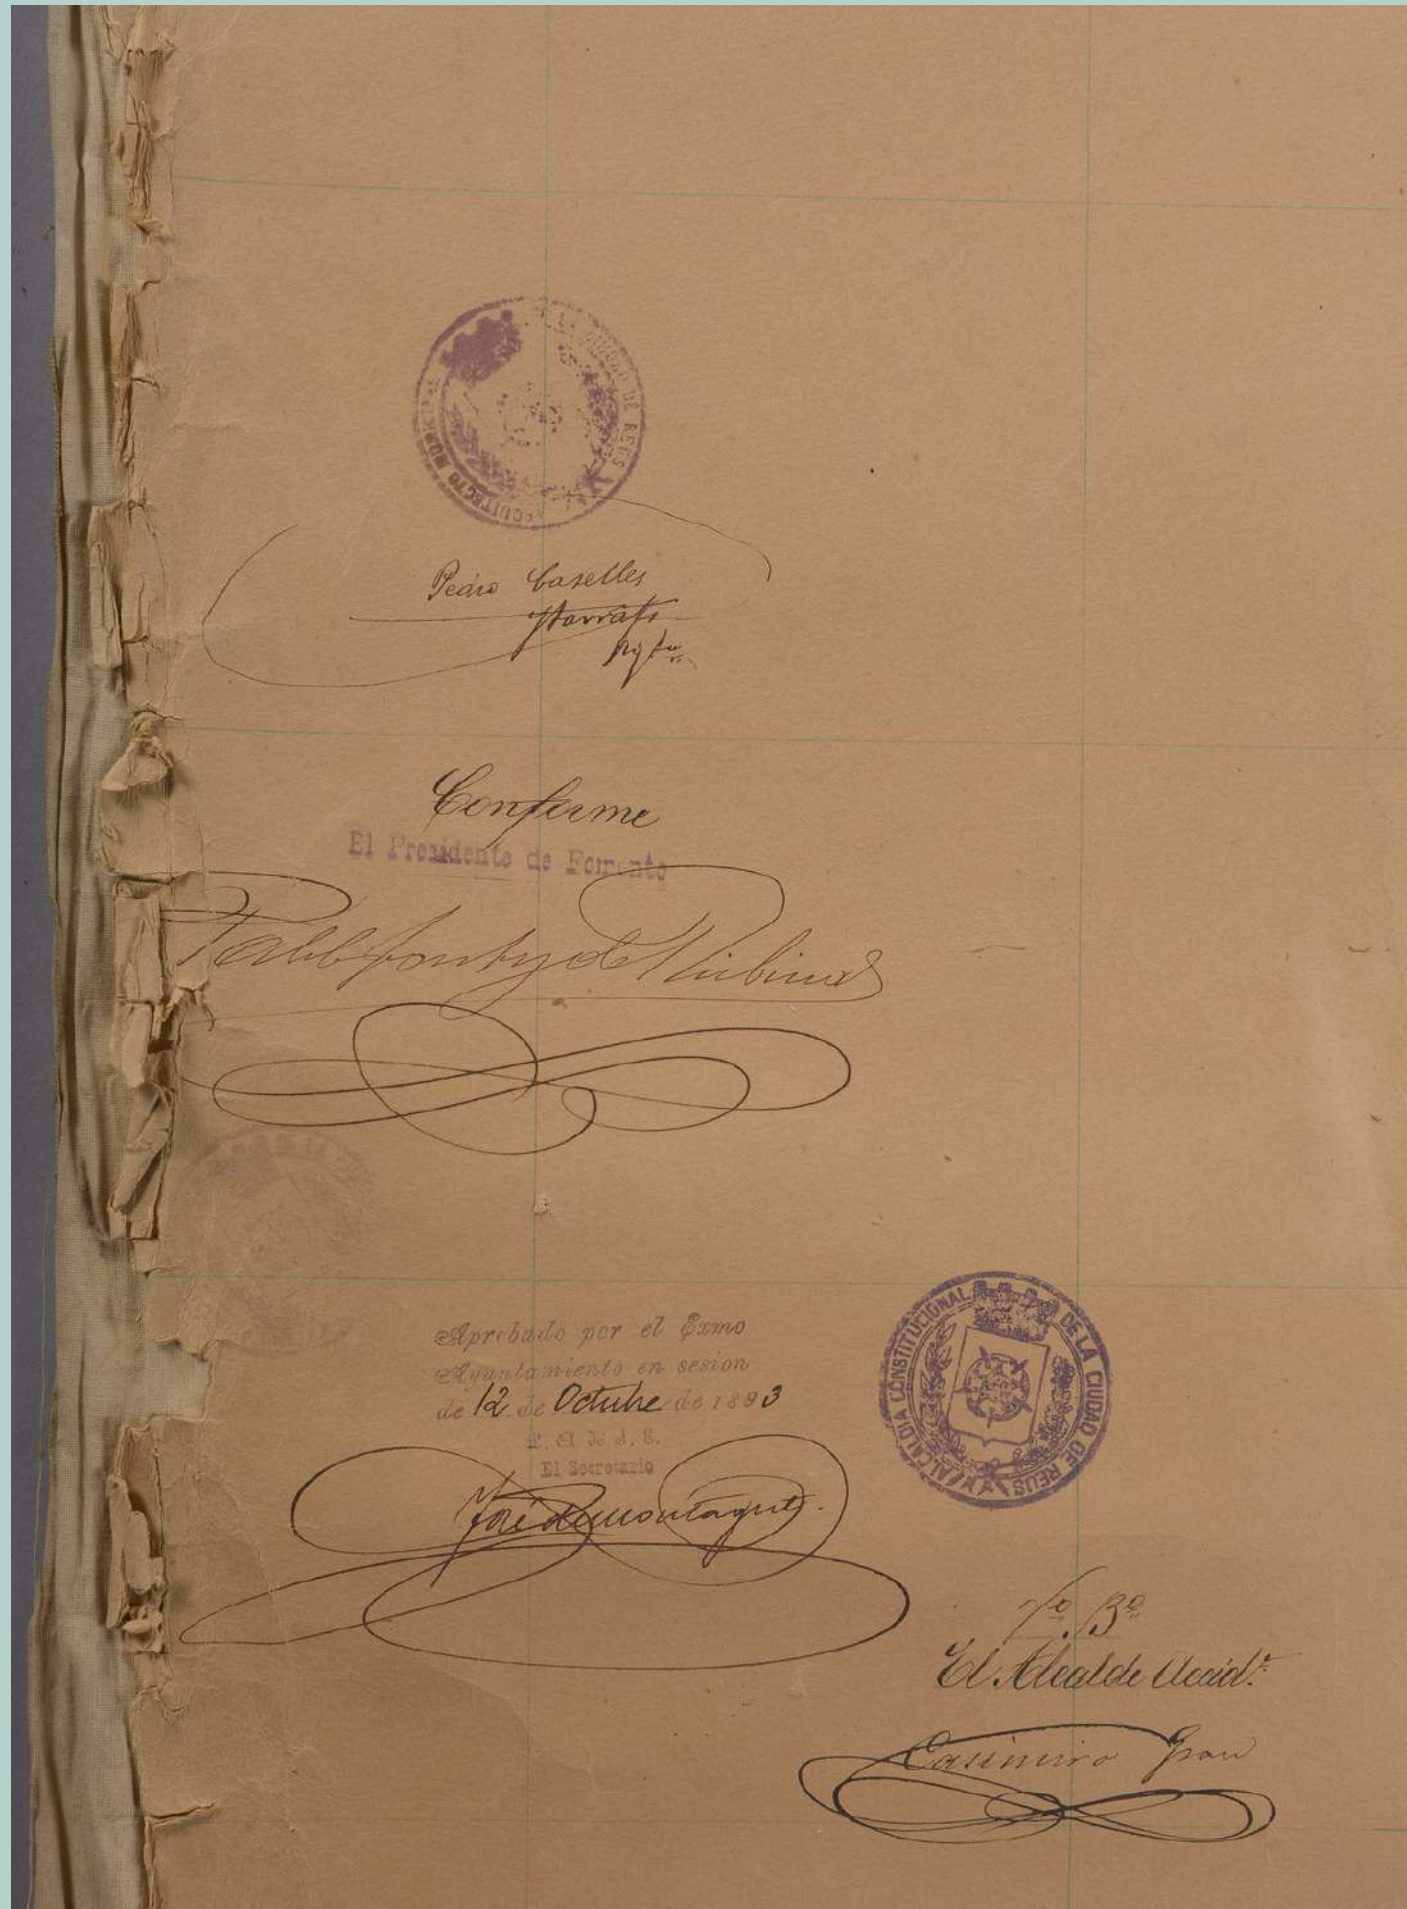 ARQUITECTO MUNICIPAL DE LA CIUDAD DE REUS
Pedro Caselles
y Tarrats
Conforme
El Presidente de Fomento
Aprobado por el Exmo
Ayuntamiento en sesion
de 12 de Octubre de 1893
P. A. de S. E.
El Secretario
José de Montagut
ALCALDIA CONSTITUCIONAL DE LA CIUDAD DE REUS
Vº Bº
El Alcalde Accidl.
Casimiro Grau